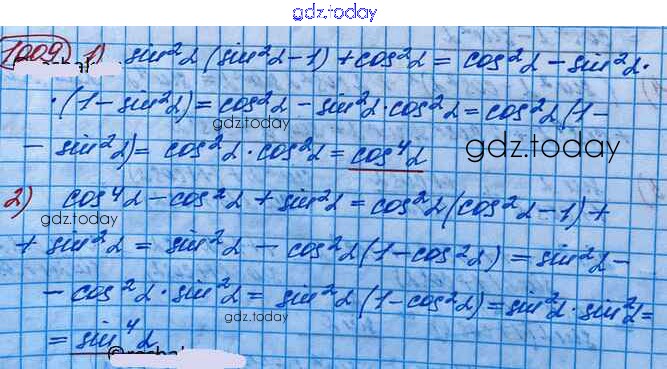 gdz.today
1009 1) sin²α(sin²α-1)+cos²α = cos²α - sin²α·
·(1-sin²α) = cos²α - sin²α·cos²α = cos²α(1-
gdz.today
- sin²α) = cos²α·cos²α = cos⁴α
gdz.today
2) cos⁴α - cos²α + sin²α = cos²α(cos²α-1)+
gdz.today
+ sin²α = sin²α - cos²α(1-cos²α) = sin²α -
- cos²α·sin²α = sin²α(1-cos²α) = sin²α·sin²α =
gdz.today
= sin⁴α